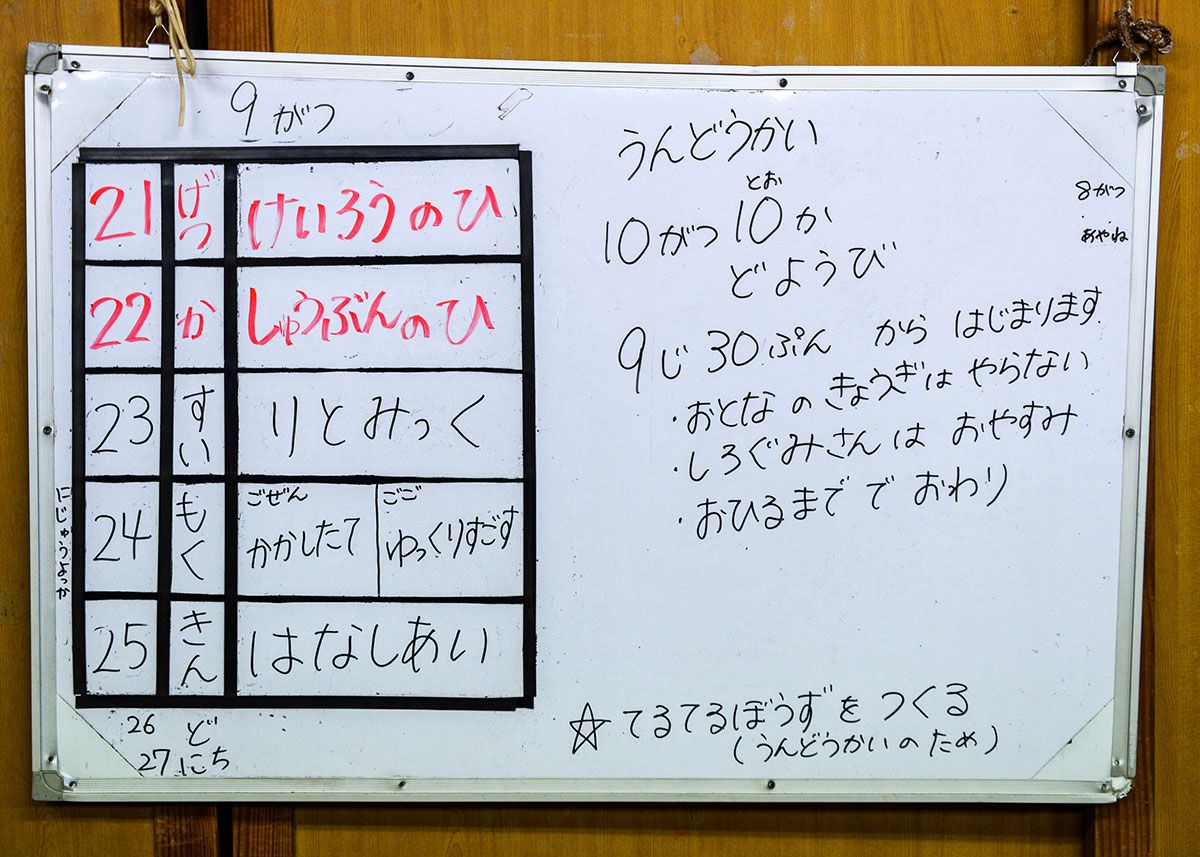 9がつ
21 げつ けいろうのひ
22 か しゅうぶんのひ
23 すい りとみっく
にじゅうよっか
24 もく ごぜん かかしたて ごご ゆっくりすごす
25 きん はなしあい
26 ど
27 にち
うんどうかい
とお
10がつ10か
どようび
9じ30ぷん からはじまります
・おとなのきょうぎはやらない
・しろぐみさんはおやすみ
・おひるまででおわり
☆てるてるぼうずをつくる
(うんどうかいのため)
8がつ
あやね